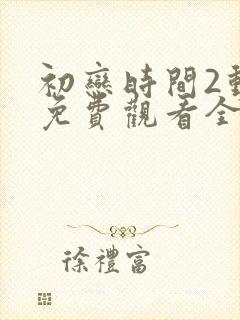 初戀時間2
免費觀看全
徐禮富